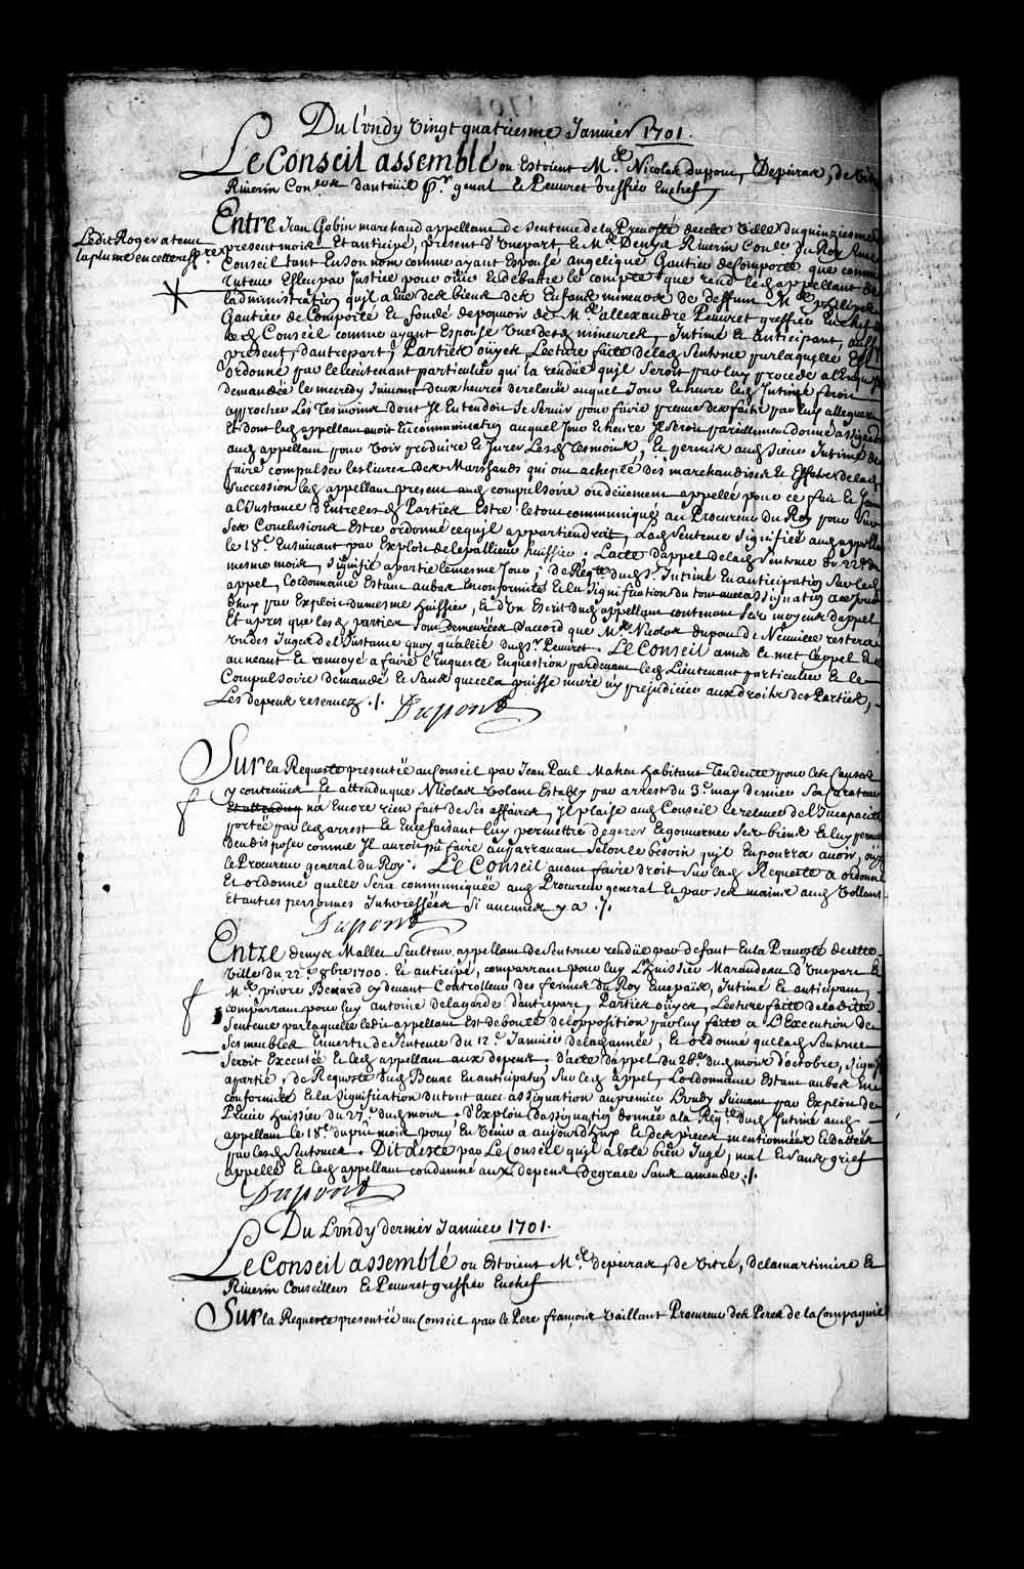 Du Lundy Vingt quatriesme Janvier 1701.
Le Conseil assemblé ou Estoient Me. Nicolas dupont, Depeiras, de
Riverin Coners dauteüil pr. genal Et Peuvret Greffier En chef
Ledit Roger a tenu
la plume en cette
Entre Jean Gobin marchand appellant de sentence de la Prevosté de cette Ville du quinziesme
present mois Et anticipé, present d'Une part, Et Me. Denys Riverin Coner. du Roy
Conseil tant En Son nom comme ayant Espousé angelique Gautier de Comporté que comme
Tuteur Esleu par Justice pour oüir Et debattre le compte que rend ledt appellant de
l'administration qu'il a eüe des biens des Enfans mineurs de deffunt Mr. philippe
Gautier de Comporté Et fondé de pouvoir de Me. allexandre Peuvret greffier En chef
Conseil comme ayant Espousé Une desd mineures, Intimé Et anticipant, aussy
present, d'autre part; Parties oüyes, Lecture faite de lad Sentence par laquelle Est
ordonné par le lieutenant particulier qui la rendüe qu'il seroit par luy procedé a l'Enqueste
demandée le mecredy suivant deux heures de relevée auquel Jour Et heure led Intimé feroit
approcher Les Tesmoins dont Il Entendoit se servir pour faire preuve des faits par luy alleguez
Et dont led appellant avoit Eu communication auquel Jour Et heure Il seroit pareillement donné assignation
aud appellant pour Voir produire Et Jurer Lesd Tesmoins, Et permis aud Sieur Intimé de
faire compulser les livres des Marchands qui ont achepté des marchandises Et Effets de lad
Succession led appellant present aud compulsoire ou deüement appellé pour ce fait Et
a l'Instance d'Entre lesd Parties Estre le tout communiqué au Procureur du Roy pour sur
Ses Conclusions Estre ordonné ce qu'il appartiendroit, Lad Sentence signifiée aud appellant
le 18e. Ensuivant par Exploit de Lepallieur huissier. L'acte d'appel de lad Sentence du 22e. du
mesme mois, signifié a partie le mesme Jour; de Reqte. dud Sr. Intimé En anticipation Sur led
appel, L'ordonnance Estant au bas En conformité Et la signification du tout avec assignation
par Exploit du mesme huissier, Et d'Un Escrit dud appellant contenant Ses moyens d'appel
Et apres que lesd parties sont demeurées d'accord que Me. Nicolas dupont de Neuville restera
un des Juges de l'Instance quoy qu'allié dud Sr. Peuvret. Le Conseil a mis Et met l'appel Et
au neant Et renvoyé a faire l'Enqueste En question pardevant led Lieutenant particulier Et le
Compulsoire demandé Et Sans que cela puisse nuire ny prejudicier aux droits des Parties,
Les depens reservez ./.
Dupont
Sur la Requeste presentée au Conseil par Jean Paul Maheu habitant Tendente pour les Causes
y contenües Et attendu que Nicolas Volant Estably par arrest du 3e. may dernier Son Curateur
n'a Encore rien fait de Ses affaires, Il plaise aud Conseil le relever de l'Incapacité
portée par led arrest Et En ce faisant luy permettre de gerer Et gouverner Ses biens Et luy permettre
d'en disposer comme Il auroit pû faire auparavant Selon le besoin qu'il En pourra avoir, oüy
le Procureur general du Roy. Le Conseil avant faire droit Sur lad Requeste a ordonné
Et ordonne quelle Sera communiquée aud Procureur general Et par Ses mains aud Vollant
Et autres personnes Interessées Si aucunes y a ./.
Dupont
Entre denys Mallet Sculteur appellant de Sentence rendüe par defaut En la Prevosté de cette
Ville du 22e. 8bre 1700. Et anticipé, comparant pour luy L'huissier Marandeau d'Une part Et
Me. pierre Benard cy devant Controlleur des fermes du Roy En ce païs, Intimé Et anticipant,
comparant pour luy antoine delagarde d'autre part, Parties oüyes, Lecture faite de la dite
Sentence par laquelle ledit appellant Est debouté de l'opposition par luy faite a L'Execution de
Ses meubles En vertu de Sentence du 12e. Janvier de lad année, Et ordonné que lad Sentence
Seroit Executée Et led appellant aux depens, d'acte d'appel du 26e. dud mois d'octobre, signifié
a partie, de Requeste dud Benac En anticipation Sur led appel, L'ordonnance Estant au bas En
conformité Et la signification du tout avec assignation au premier Lundy Suivant par Exploit de
huissier du 27e. dud mois, d'Exploit d'assignation donnée a la Reqte. dud Intimé aud
appellant le 18e. du pnt mois pour En Venir a aujourd'huy Et des pieces mentionnées Et dattées
par lesd Sentences. Dit a Esté par Le Conseil qu'il a Esté bien Jugé, mal Et Sans grief
appellé Et led appellant condamné aux depens De grace Sans amende ./.
Dupont
Du Lundy dernier Janvier 1701.
Le Conseil assemblé ou Estoient Me. depeiras, de Vitré, delamartiniere Et
Riverin Conseillers Et Peuvret greffier En chef
Sur la Requeste presentée au Conseil par le Pere françois Vaillant Procureur des Peres de la Compagnie